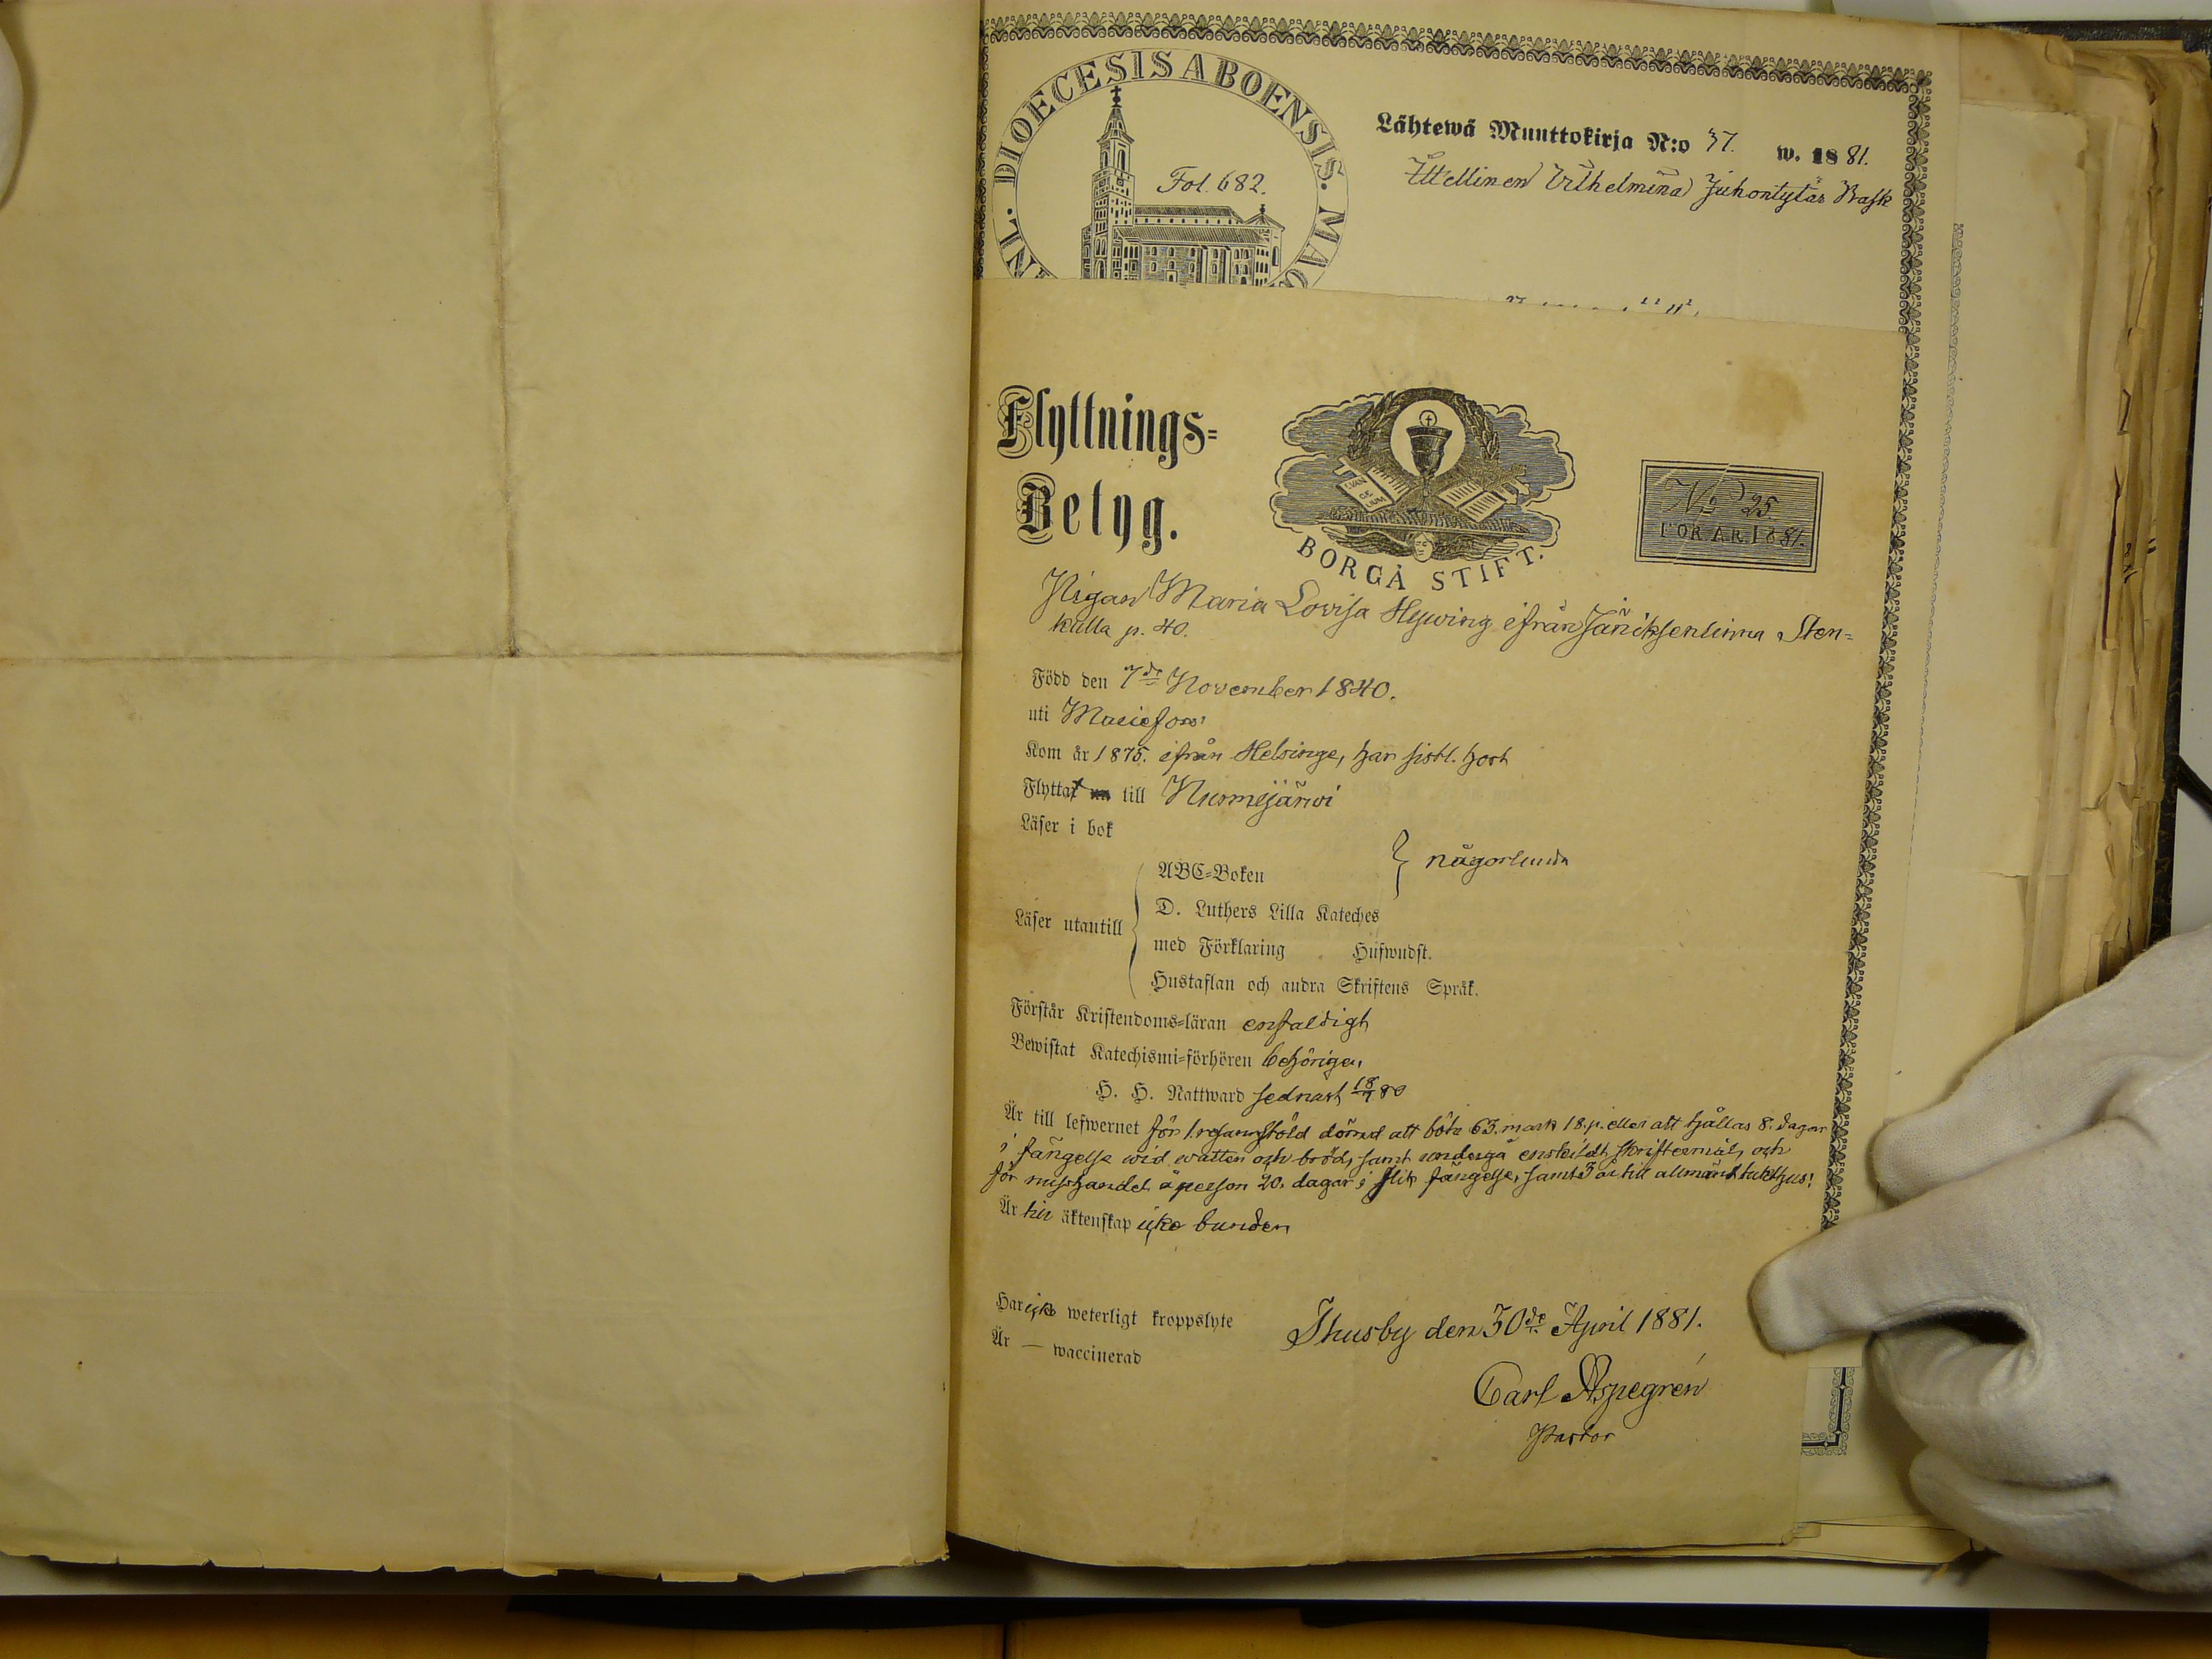 DIOECESIS ABOENSIS. MAG
Fol. 682.
Lähtewä Muuttokirja N:o 37. w. 1881.
Ittellinen Vilhelmina Juhontytär Rask
Flyttnings=
Betyg.
EVAN
GE
LIUM
BORGÅ STIFT.
No 25
FÖR ÅR 1881.
Pigan Maria Lovisa Hywing ifrån Stens=
kulla p. 40.
Född den 7de November 1840.
uti
Kom år 1875. ifrån Helsinge, har sistl. höst
Flyttat till Nurmijärwi
Läser i bok
ABC=Boken
någorlunda
Läser utantill
D. Luthers Lilla Kateches
med Förklaring Hufwudst.
Hustaflan och andra Skriftens Språk.
Förstår Kristendoms=läran enfaldigt
Bewistat Katechismi=förhören behörigen
H. H. Nattward sednast 18/7 80
Är till lefwernet för 1. resan stöld dömd att böta 63. mark 18. p. eller att hållas 8. dagar
i fängelse wid watten och bröd, samt undergå enskildt skriftermål, och
för misshandel å person 20. dagar i slik fängelse, samt 3 år till allmänt
Är till äktenskap icke bunden
Har icke weterligt kroppslyte
Är — waccinerad
Thusby den 30de April 1881.
Carl Aspegrén
Pastor